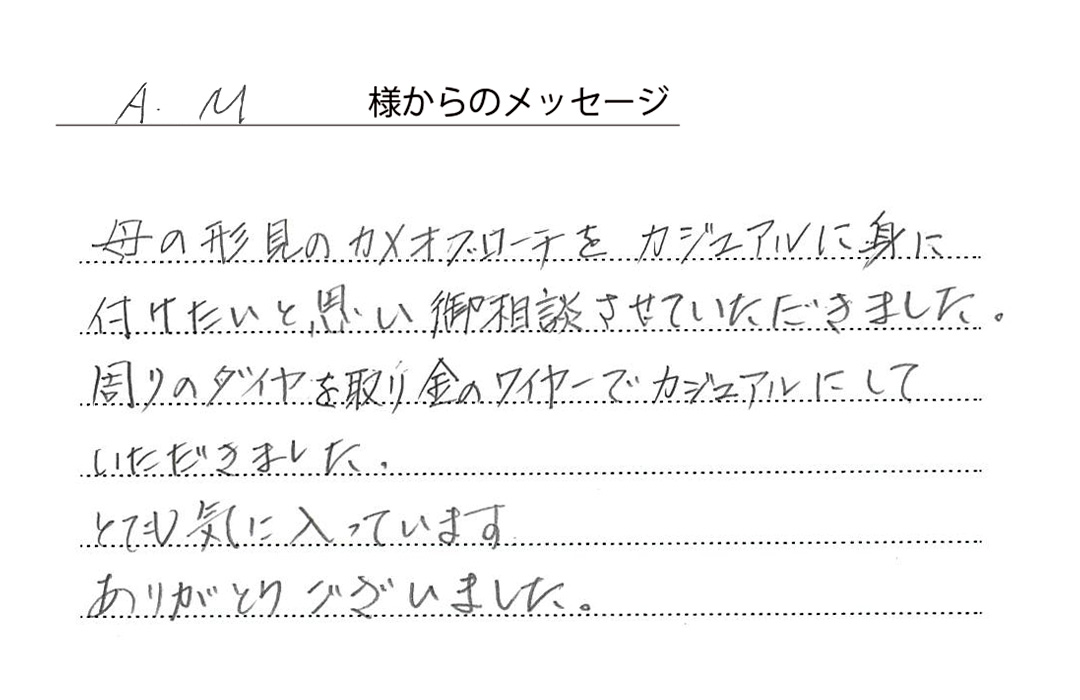 A. M 様からのメッセージ
母の形見のカメオブローチを カジュアルに身に
付けたいと思い 御相談させていただきました。
周りのダイヤを取り金のワイヤーでカジュアルにして
いただきました.
とても気に入っています
ありがとうございました。